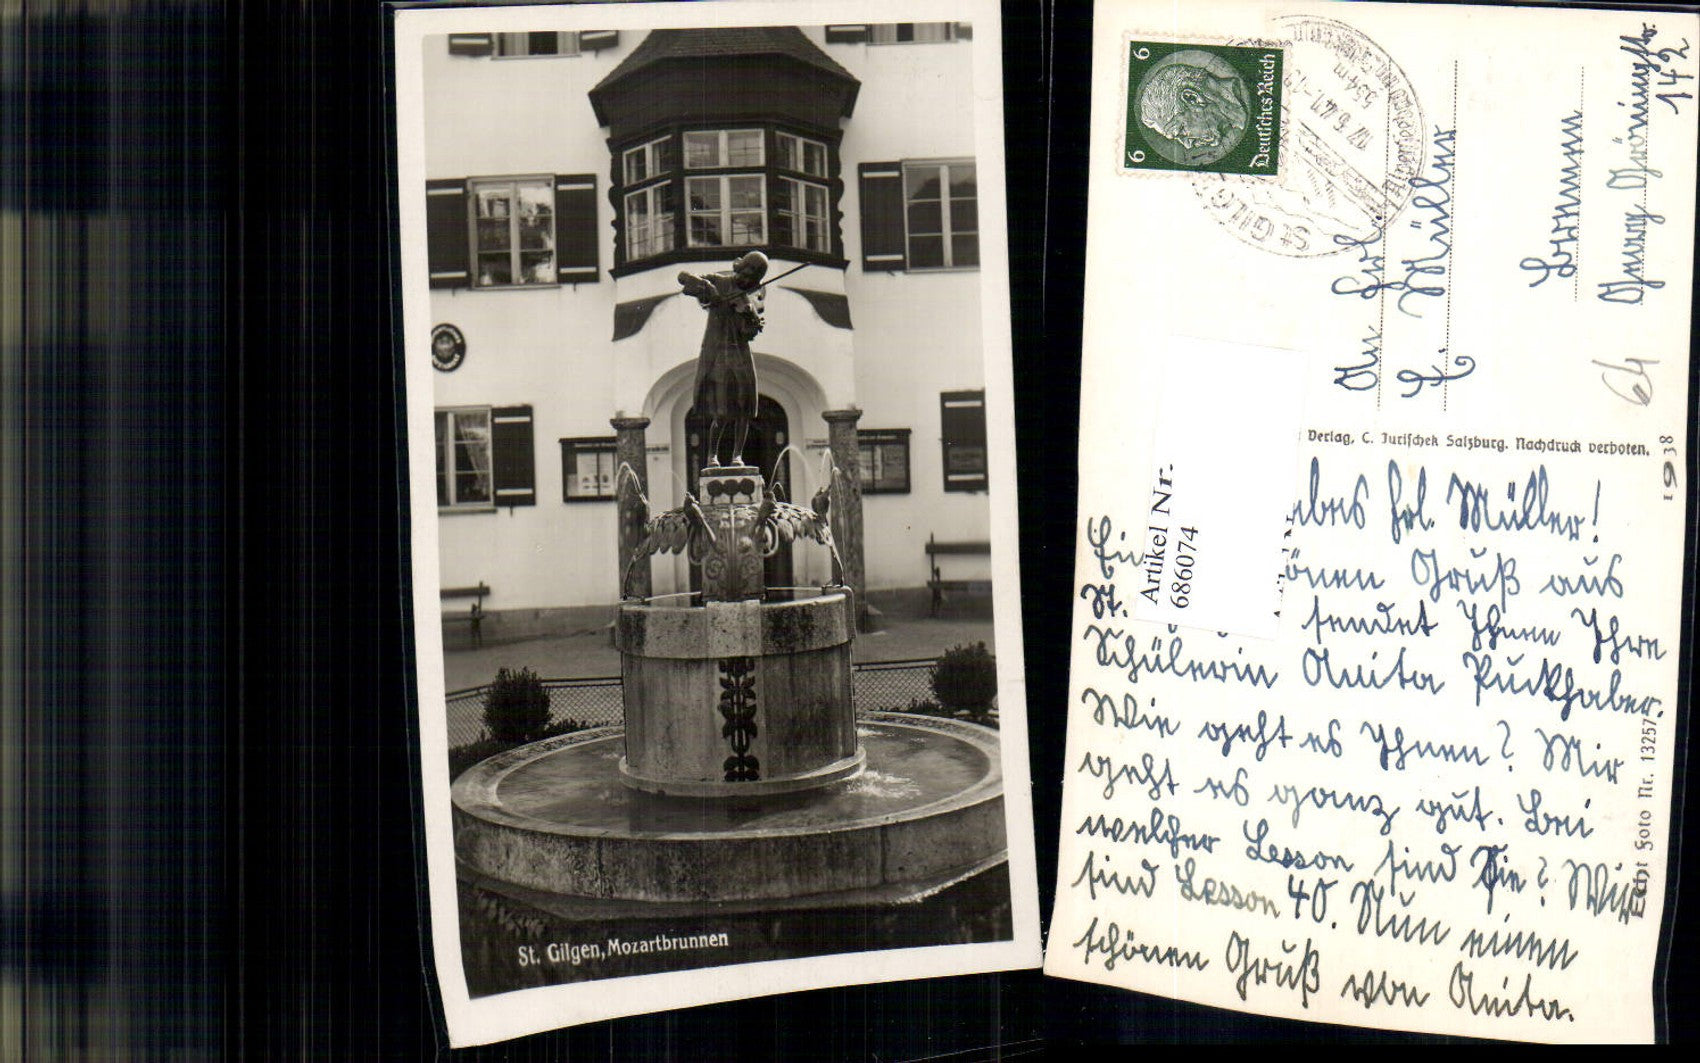 St. Gilgen, Mozartbrunnen
6
6
Deutsches Reich
St GILGEN
17.6.41.-19
554 m
An Frl.
E. Müller
Bremen
142
64
Verlag, C. Jurischek Salzburg. Nachdruck verboten.
1938
Artikel Nr.
686074
bes Frl. Müller!
Ein önen Gruß aus
St. sendet Ihnen Ihre
Schülerin Anita Puckhaber.
Wie geht es Ihnen? Mir
geht es ganz gut. Bei
welcher Lesson sind Sie? Wir
sind Lesson 40. Nun einen
schönen Gruß von Anita.
Echt Foto Nr. 13257